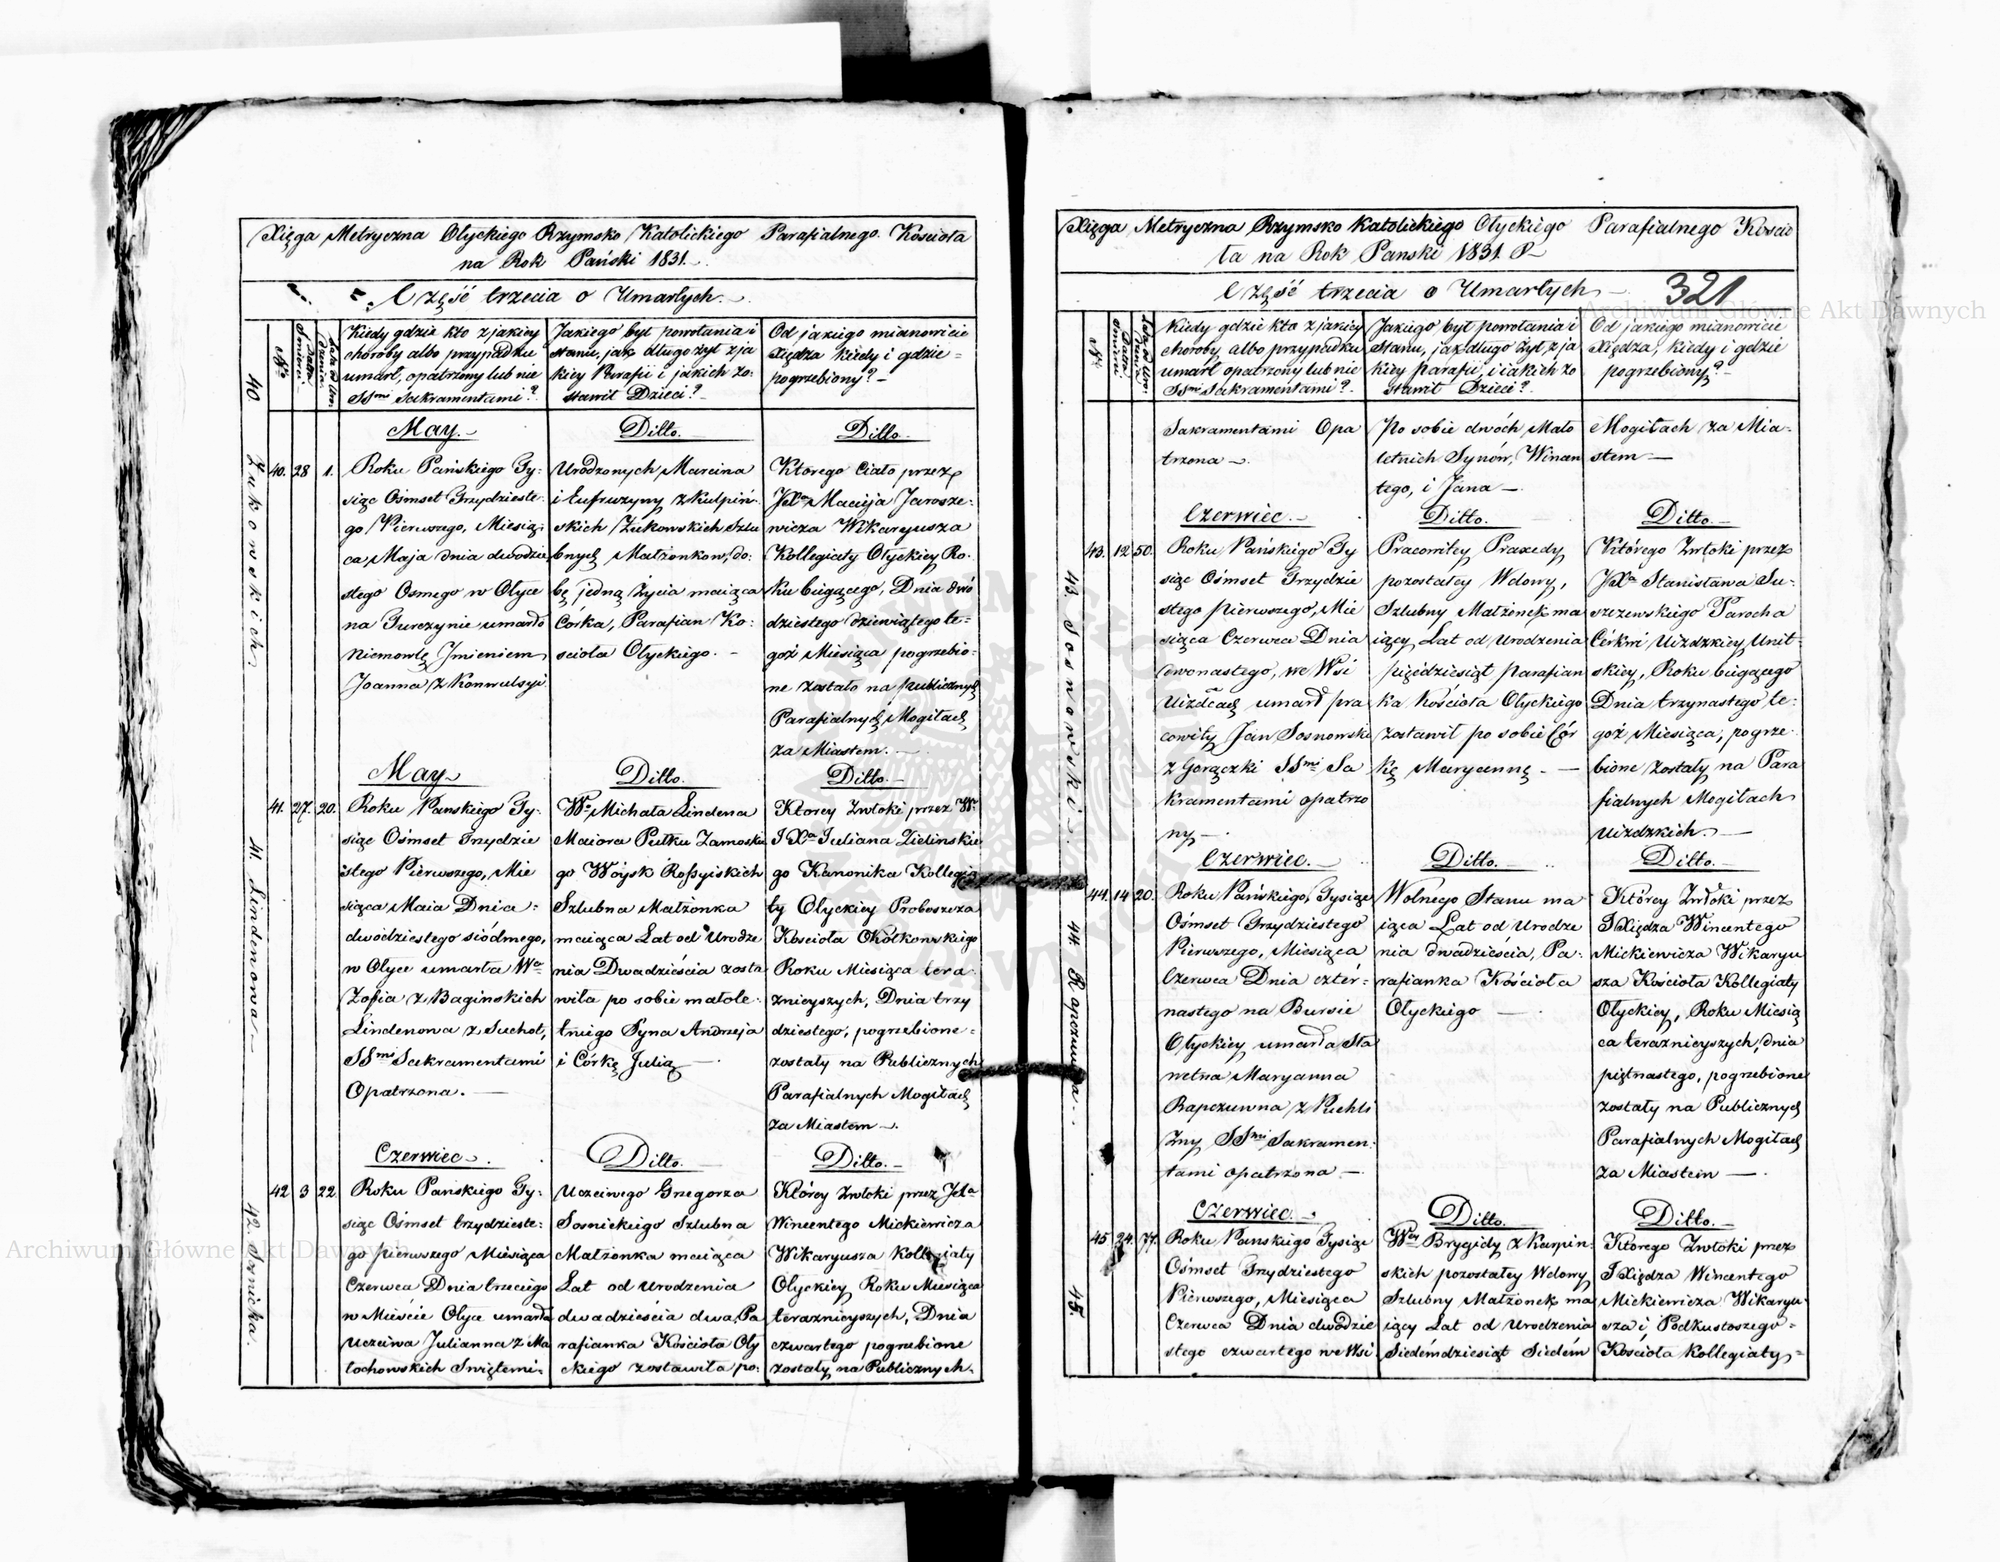 Xięga Metryczna Ołyckiego Rzymsko Katolickiego Parafialnego Kościoła
na Rok Pański 1831.
Część trzecia o Umarłych.
Kiedy gdzie kto z jakiey
choroby albo przypadku
umarł, opatrzony lub nie
SSmi Sakramentami?
Jakiego był powołania i
stanu, jak długo żył z ja
kiey Parafii i jakich zo-
stawił Dzieci?
Od jakiego mianowicie
Xiędza kiedy i gdzie=
pogrzebiony?
40. Żukowskich
May.
40. 28 1.
Roku Pańskiego Ty-
siąc Ośmset Trzydzieste-
go Pierwszego, Miesią-
ca Maja dnia dwodzie
stego Osmego w Ołyce
na Turczynie umarło
Niemowlę Jmieniem
Joanna z Konwulsyi
Ditto.
Urodzonych Marcina
i Eufruzyny z Kulpiń-
skich Żukowskich Szlu
bnych Małżonkow, do-
bę jedną życia maiąca
Córka, Parafian Ko-
ścioła Ołyckiego.
Ditto.
Którego Ciało przez
JXa Macieja Jarosze-
wicza Wikaryusza
Kollegiaty Ołyckiey Ro-
ku biegącego, Dnia dwó
dziestego dziewiątego te-
goż Miesiąca pogrzebio-
ne zostało na publicznych
Parafialnych Mogiłach
za Miastem.
41. Lindenowa
May
41. 27. 20.
Roku Panskiego Ty-
siąc Ośmset Trzydzie
stego Pierwszego, Mie
siąca Maia Dnia
dwodziestego siódmego,
w Ołyce umarła Wa
Zofia z Bagińskich
Lindenowa z Suchot,
SSmi Sakramentami
Opatrzona.
Ditto.
Wo Michała Lindena
Maiora Pułku Zamosku
go Woysk Roßyiskich
Szlubna Małżonka
maiąca Lat od Urodze
nia Dwadzieścia zosta
wiła po sobie małole-
tniego Syna Andrzeja
i Córkę Julią
Ditto.
Ktorey Zwłoki przez W
JXa Juliana Zielinskie
go Kanonika Kollegia
ty Ołyckiey Proboszcza
Kościoła Okólkowskiego
Roku Miesiąca tera-
znieyszych, Dnia trzy
dziestego, pogrzebione-
zostały na Publicznych
Parafialnych Mogiłach
za Miastem
42. Sznicka.
Czerwiec
42 3 22.
Roku Pańskiego Ty-
siąc Ośmset trzydzieste-
go pierwszego Miesiąca
Czerwca Dnia trzeciego
w Mieście Ołyce umarła
Uczciwa Julianna z Ma
łochowskich Swiętemi-
Ditto.
Uczciwego Grzegorza
Sosnickiego Szlubna
Małżonka maiąca
Lat od Urodzenia
dwadzieścia dwa, Pa
rafianka Kościoła Oły
ckiego zostawiła po-
Ditto.
Którey Zwłoki przez JXa
Wincentego Mickiewicza
Wikaryusza Kollegiaty
Ołyckiey Roku Miesiąca
teraznieyszych, Dnia
czwartego pogrzebione
zostały na Publicznych
Xięga Metryczna Rzymsko Katolickiego Ołyckiego Parafialnego Kościo
ła na Rok Panski 1831. R
Część trzecia o Umarłych
321
Kiedy gdzie kto z jakiey
choroby, albo przypadku
umarł opatrzony lub nie
SSmi Sakramentami?
Jakiego był powołania i
Stanu, jak długo żył z ja
kiey parafii, i jakich zo
stawił Dzieci?
Od jakiego mianowicie
Xiędza, kiedy i gdzie
pogrzebiony?
Sakramentami Opa
trzona
Po sobie dwóch Mało
letnich Synów, Winan
tego, i Jana
Mogiłach za Mia-
stem
43. Sosnowski.
Czerwiec.
43. 12 50.
Roku Pańskiego Ty
siąc Ośmset Trzydzie
stego pierwszego, Mie
siąca Czerwca Dnia
dwonastego, we Wsi
Uizdcach umarł pra
cowity Jan Sosnowski
z Gorączki SSmi Sa
kramentami opatrzo
ny
Ditto.
Pracowitey Praxedy
pozostałey Wdowy,
Szlubny Małżonek ma
iący Lat od Urodzenia
pięćdziesiąt parafian
ka Kościoła Ołyckiego
zostawił po sobie Cór
kę Maryannę.
Ditto.
Którego Zwłoki przez
JXa Stanisława Su-
szczewskiego Parocha
Cerkwi Uizdzkiey Unit-
skiey, Roku biegącego
Dnia trzynastego te-
goż Miesiąca, pogrze-
bione zostały na Para
fialnych Mogiłach
Uizdzkich.
44. Rapczuwna.
Czerwiec.
44. 14 20.
Roku Pańskiego Tysiąc
Ośmset Trzydziestego
Pierwszego, Miesiąca
Czerwca Dnia cztér-
nastego na Bursie
Ołyckiey umarła Sła
wetna Maryanna
Rapczuwna z Puchli
zny SSmi Sakramen-
tami opatrzona
Ditto.
Wolnego Stanu ma
iąca Lat od Urodze
nia dwadzieścia, Pa-
rafianka Kościoła
Ołyckiego
Ditto.
Którey Zwłoki przez
JXiędza Wincentego
Mickiewicza Wikaryu
sza Kościoła Kollegiaty
Ołyckiey, Roku Miesią
ca teraznieyszych, dnia
piętnastego, pogrzebione
zostały na Publicznych
Parafialnych Mogiłach
za Miastem
45.
Czerwiec.
45 24. 77.
Roku Panskiego Tysiąc
Ośmset Trzydziestego
Pierwszego, Miesiąca
Czerwca Dnia dwodzie
stego czwartego we Wsi
Ditto.
Wey Brygidy z Karpin-
skich pozostałey Wdowy
Szlubny Małżonek ma
iący Lat od Urodzenia
Siedémdziesiąt Siedém
Ditto.
Ktorego Zwłoki przez
JXiędza Wincentego
Mickiewicza Wikaryu-
sza i Podkustoszego-
Kościoła Kollegiaty
Archiwum Główne Akt Dawnych
Archiwum Główne Akt Dawnych